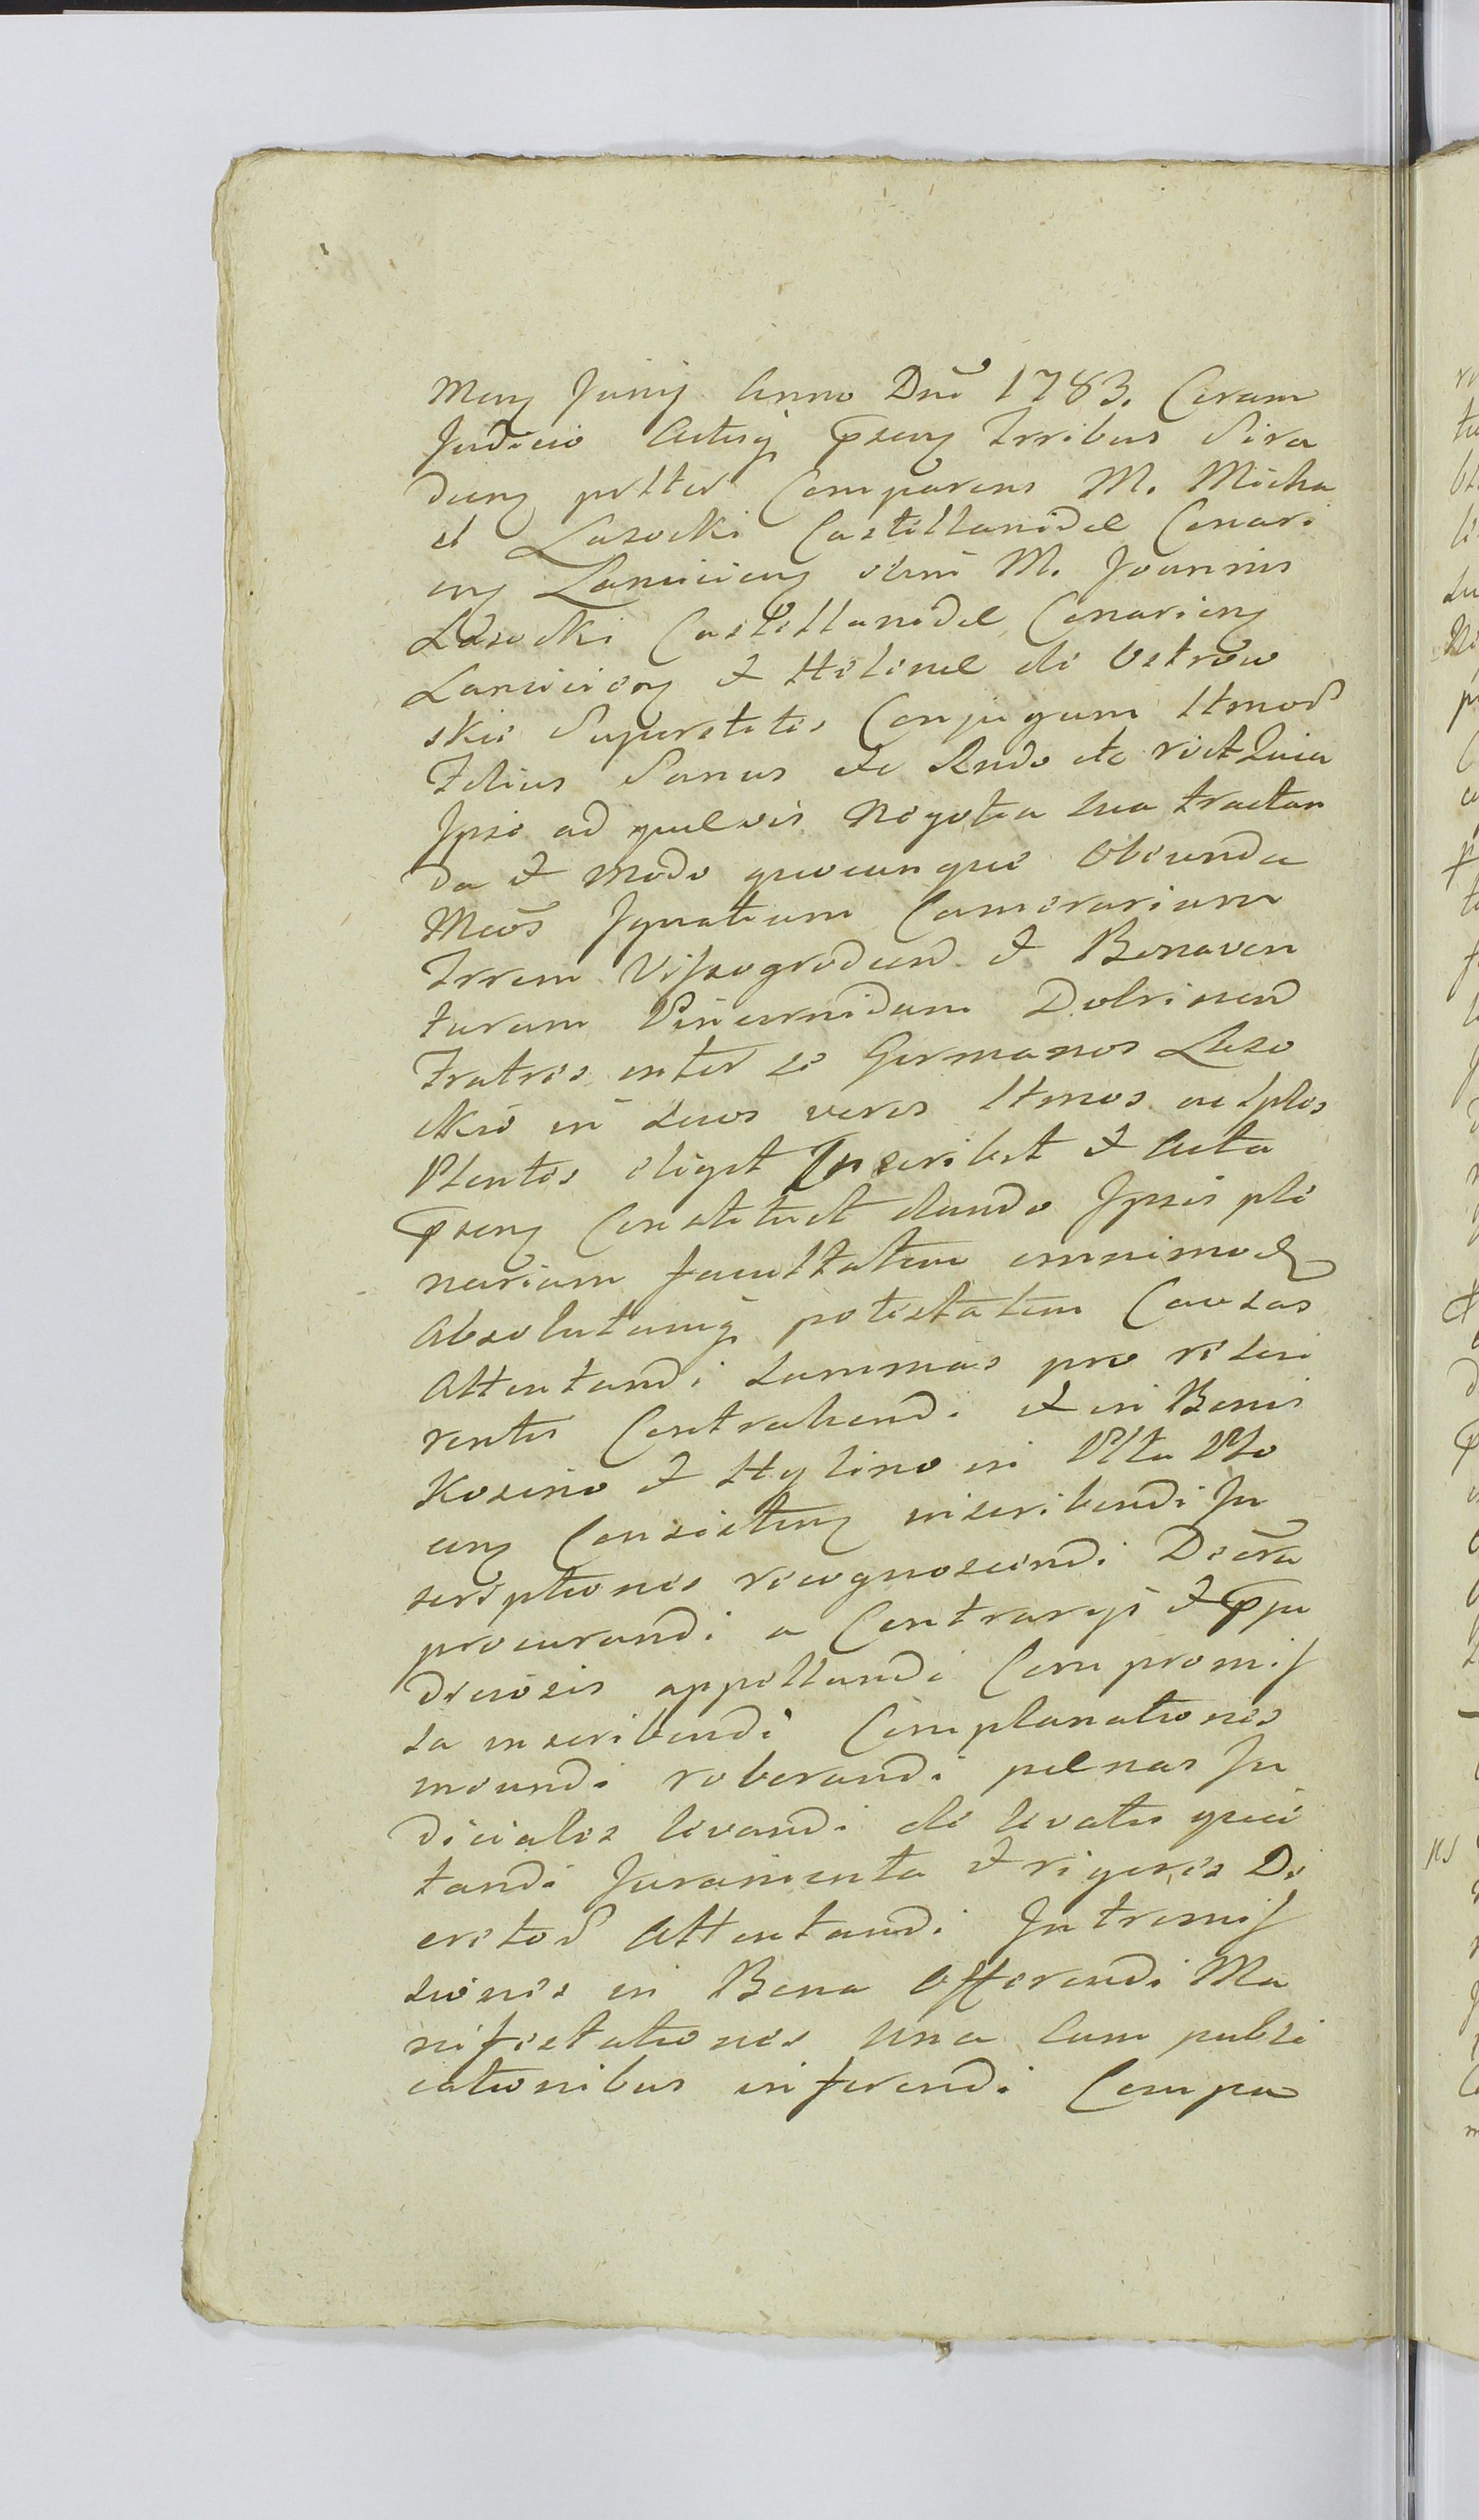 Meny Junij Anno Dnī 1783. Coram
Judicio Actisq̨ pseny Trribus Sira
dieny pslter Comparens M. Micha
el Lasocki Castellanidae Conari
eny Lanucieny olim M. Joannis
Lasocki Castellanidae Conarieny
Lancicieny & Helenae de Ostrow
skie Superstitis Conjugum Ltmod
Filius Sanus etc Rndo etc rictt Quia
Ipse ad quaevis Negotia sua tractan
da & modo quocunque Obeunda
Mcos Ignatium Camerarium
Trrem Vissogrodien & Bonaven
turam Pincernidam Dobrinen
Fratres inter se Germanos Laso
ckie in suos veros Ltmos ac Iplos
Plentes eligit Inscribit & Acta
pseny Constituit dando Ipsis ple
nariam facultatem omnimod
Absolutamq̨ potestatem Causas
Attentandi summas pro re sui
rentes Contrahendi & in Bonis
Kosino & Hylino in Pltu Plo
ceny Consisteny inscribendi In
scriptiones recognoscendi Decrta
procurandi a Contrarys & pju
diciosis appellandi Compromis
sa inscribendi Complanationes
ineundi roborandi paenas Ju
diciales levandi de levatis quie
tandi Juramenta & rigores De
cretor Attentandi Intromis
siones in Bona Offerendi Ma
nifestationes una cum publi
cationibus inferendi Compa